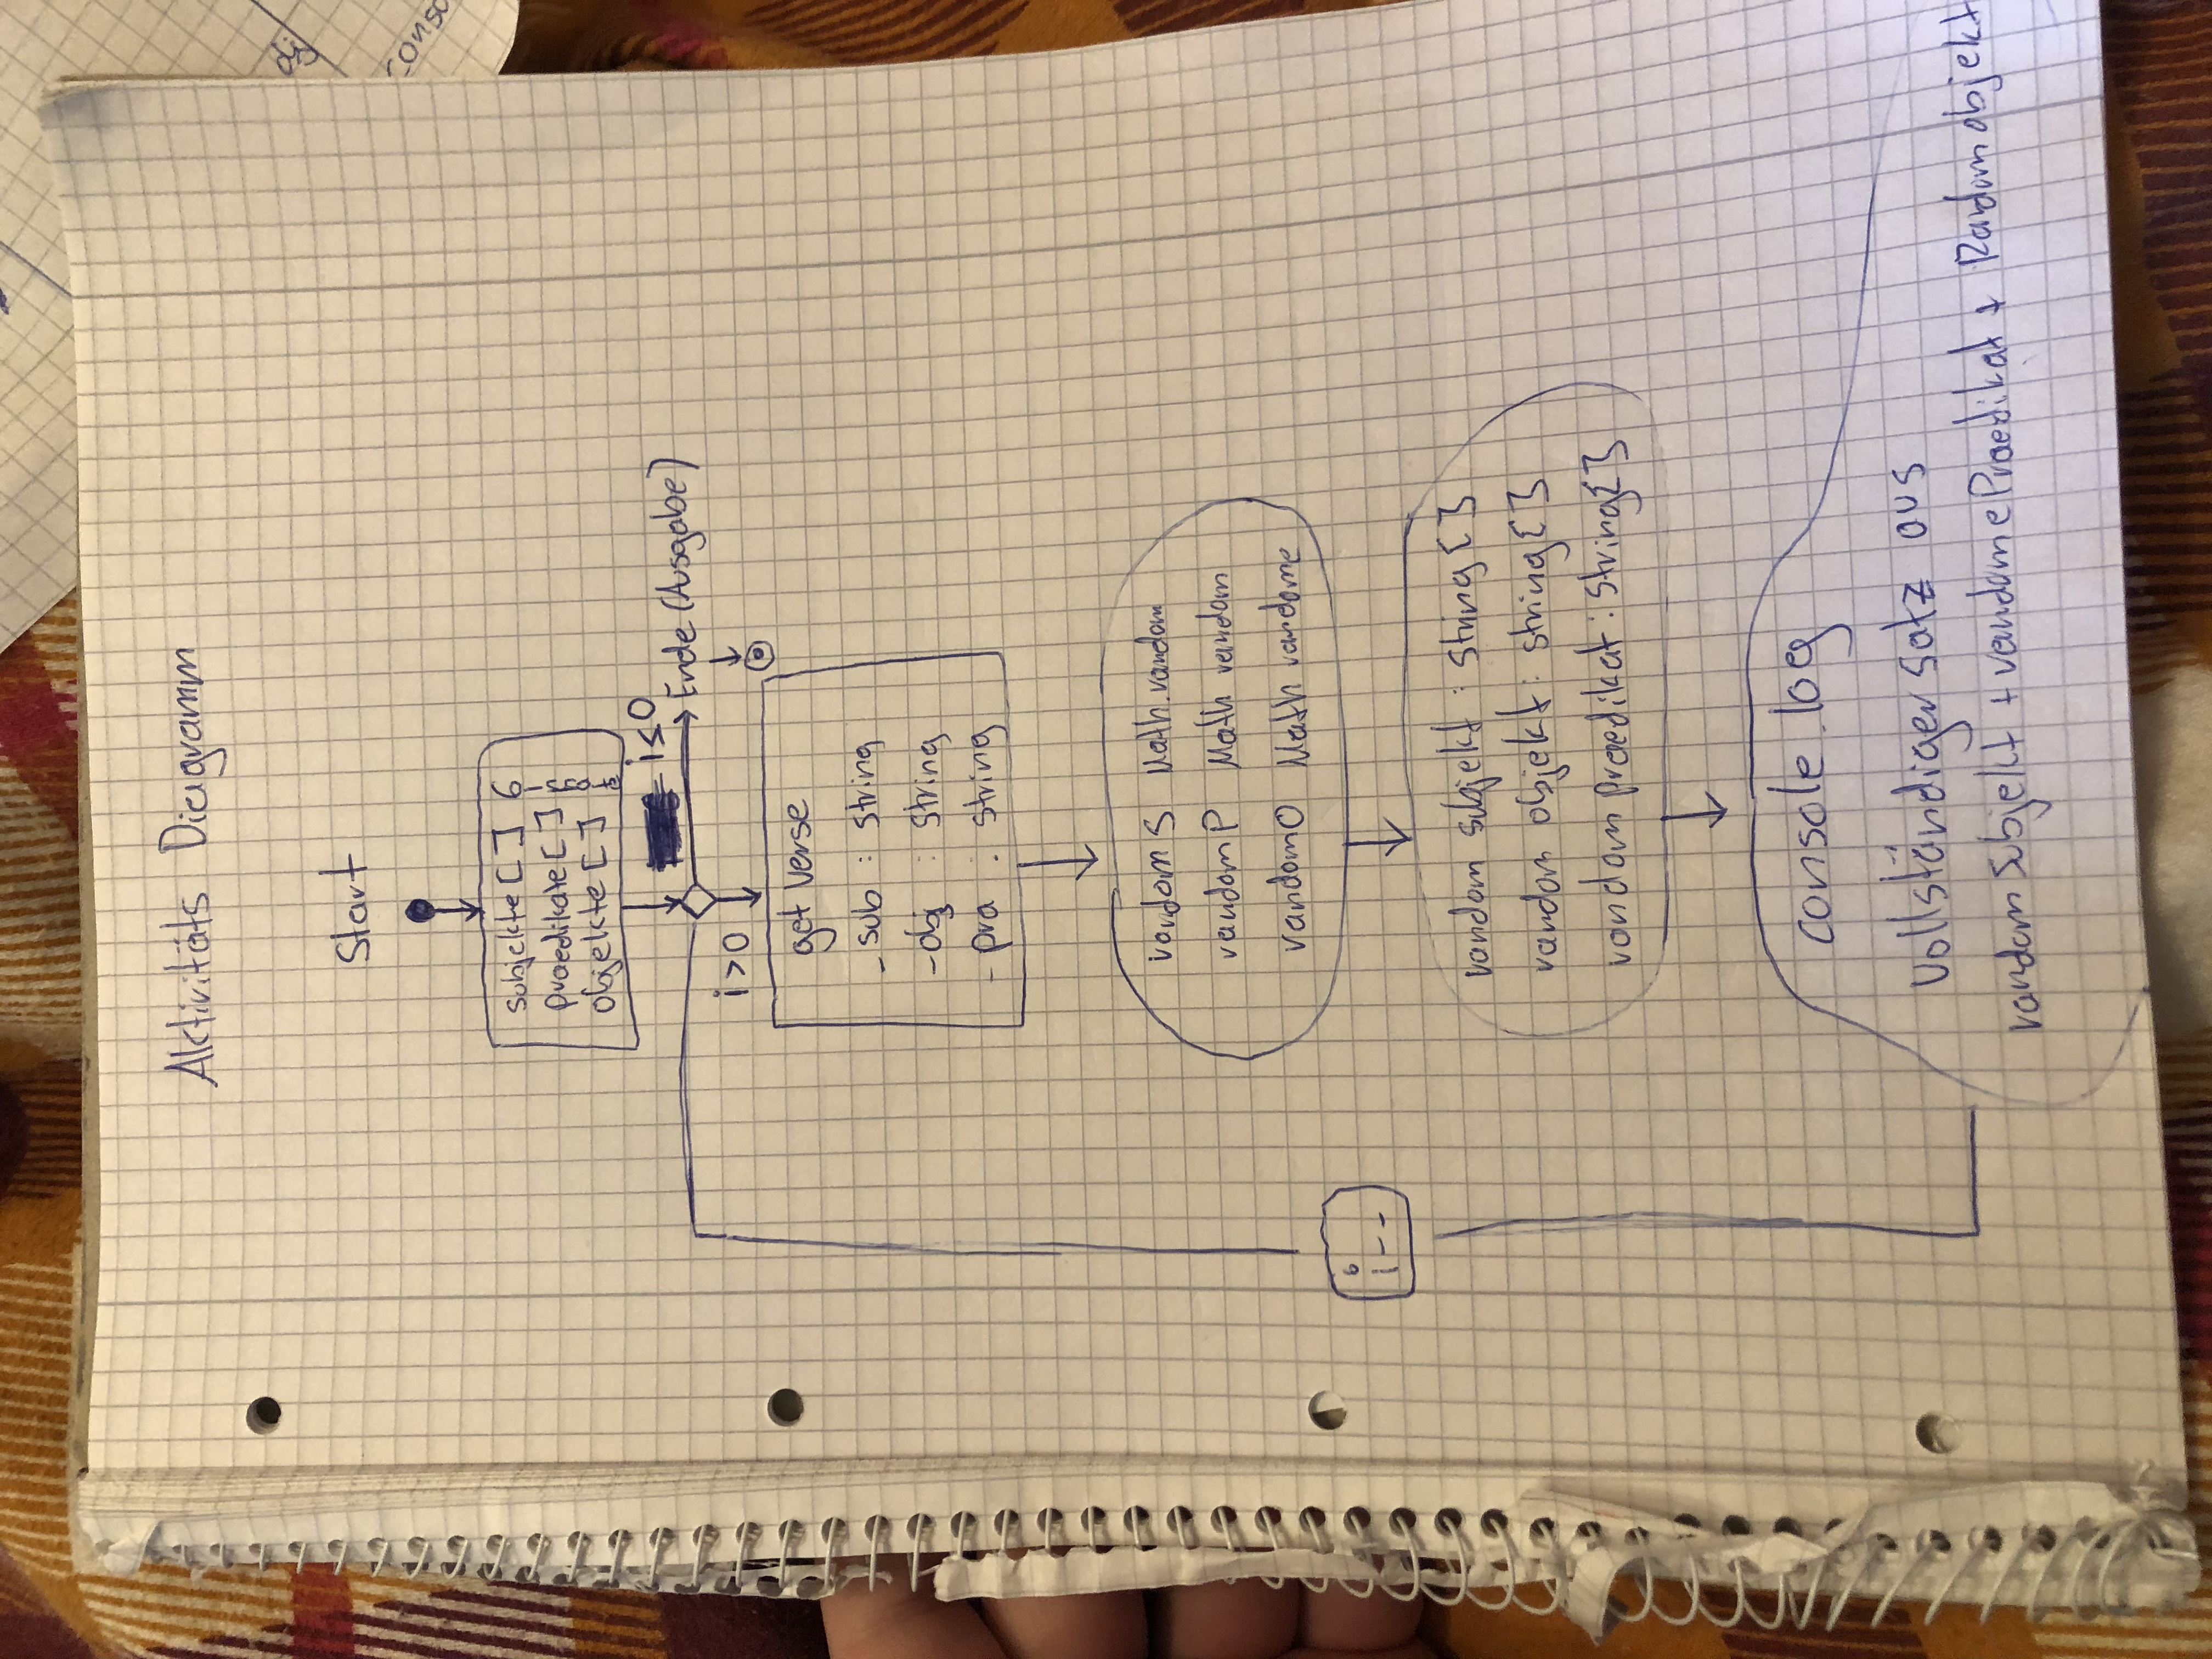 Aktivitäts Diagramm
Start
subjekte [ ] 6
praedikate [ ]
objekte [ ]
Inhalte
i ≤ 0
Ende (Ausgabe)
i > 0
get Verse
_ sub : String
- obj : String
- pra : String
random S Math.random
random P Math random
random O Math randome
i--
random subjekt : String { }
random objekt : String { }
random praedikat : String { }
console.log
vollständiger satz aus
random Subjekt + randome Praedikat + Random objekt
dij
conso